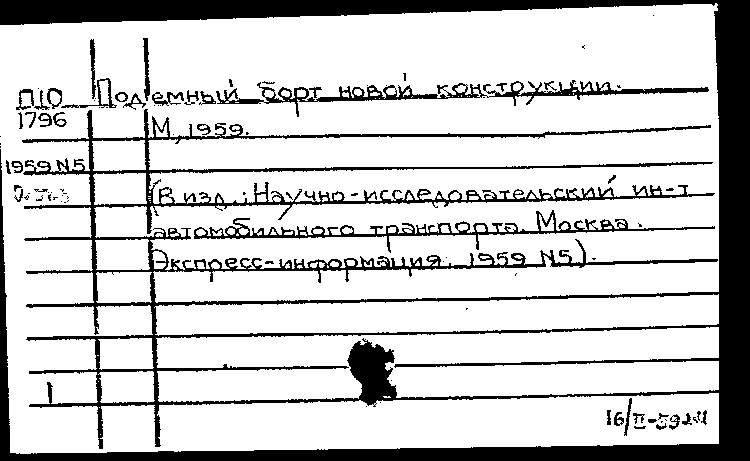 П10 Подъемный борт новой конструкции.
1796 М, 1959.
1959 N5
(В изд.: Научно-исследовательский ин-т
автомобильного транспорта. Москва.
Экспресс-информация. 1959 N5).
1